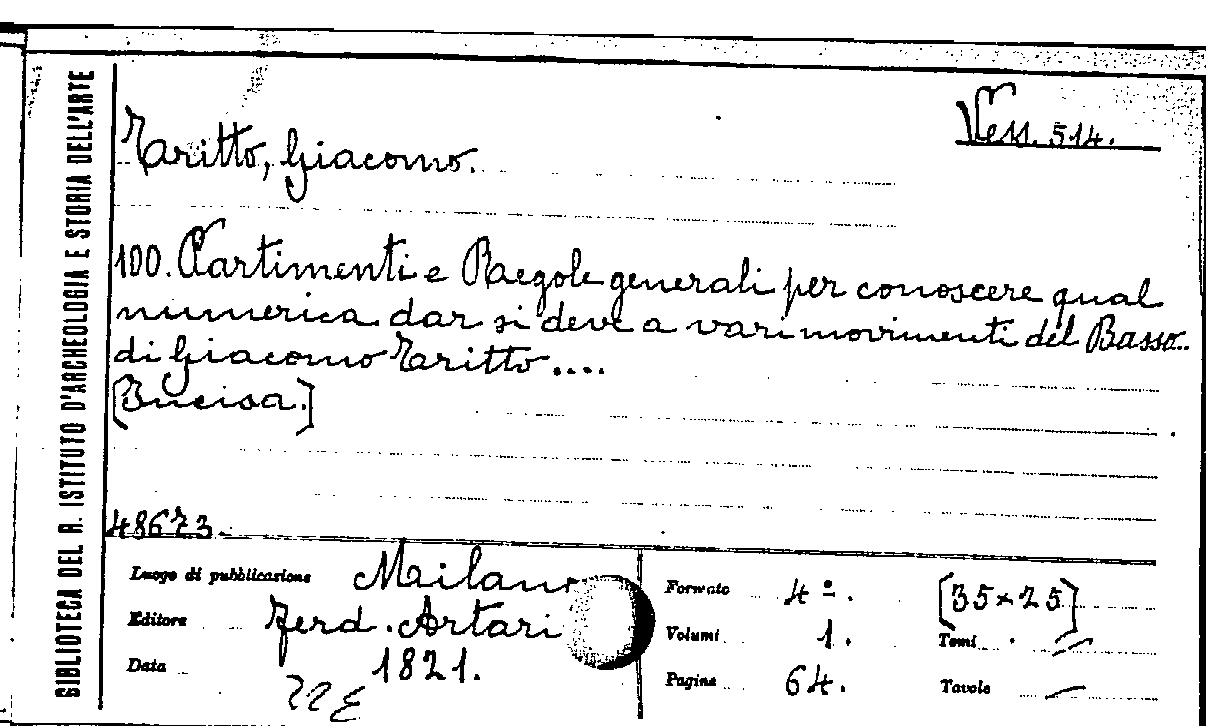 BIBLIOTECA DEL R. ISTITUTO D'ARCHEOLOGIA E STORIA DELL'ARTE
Vess. 514.
Tritto, Giacomo.
100. Partimenti e Regole generali per conoscere qual
numerica dar si deve a vari movimenti del Basso
di Giacomo Tritto ....
[Incisa.]
48673.
Luogo di pubblicazione Milano
Editore Ferd. Artari
Data 1821.
Formato 4º. [35×25]
Volumi 1. Tomi
Pagine 64. Tavole